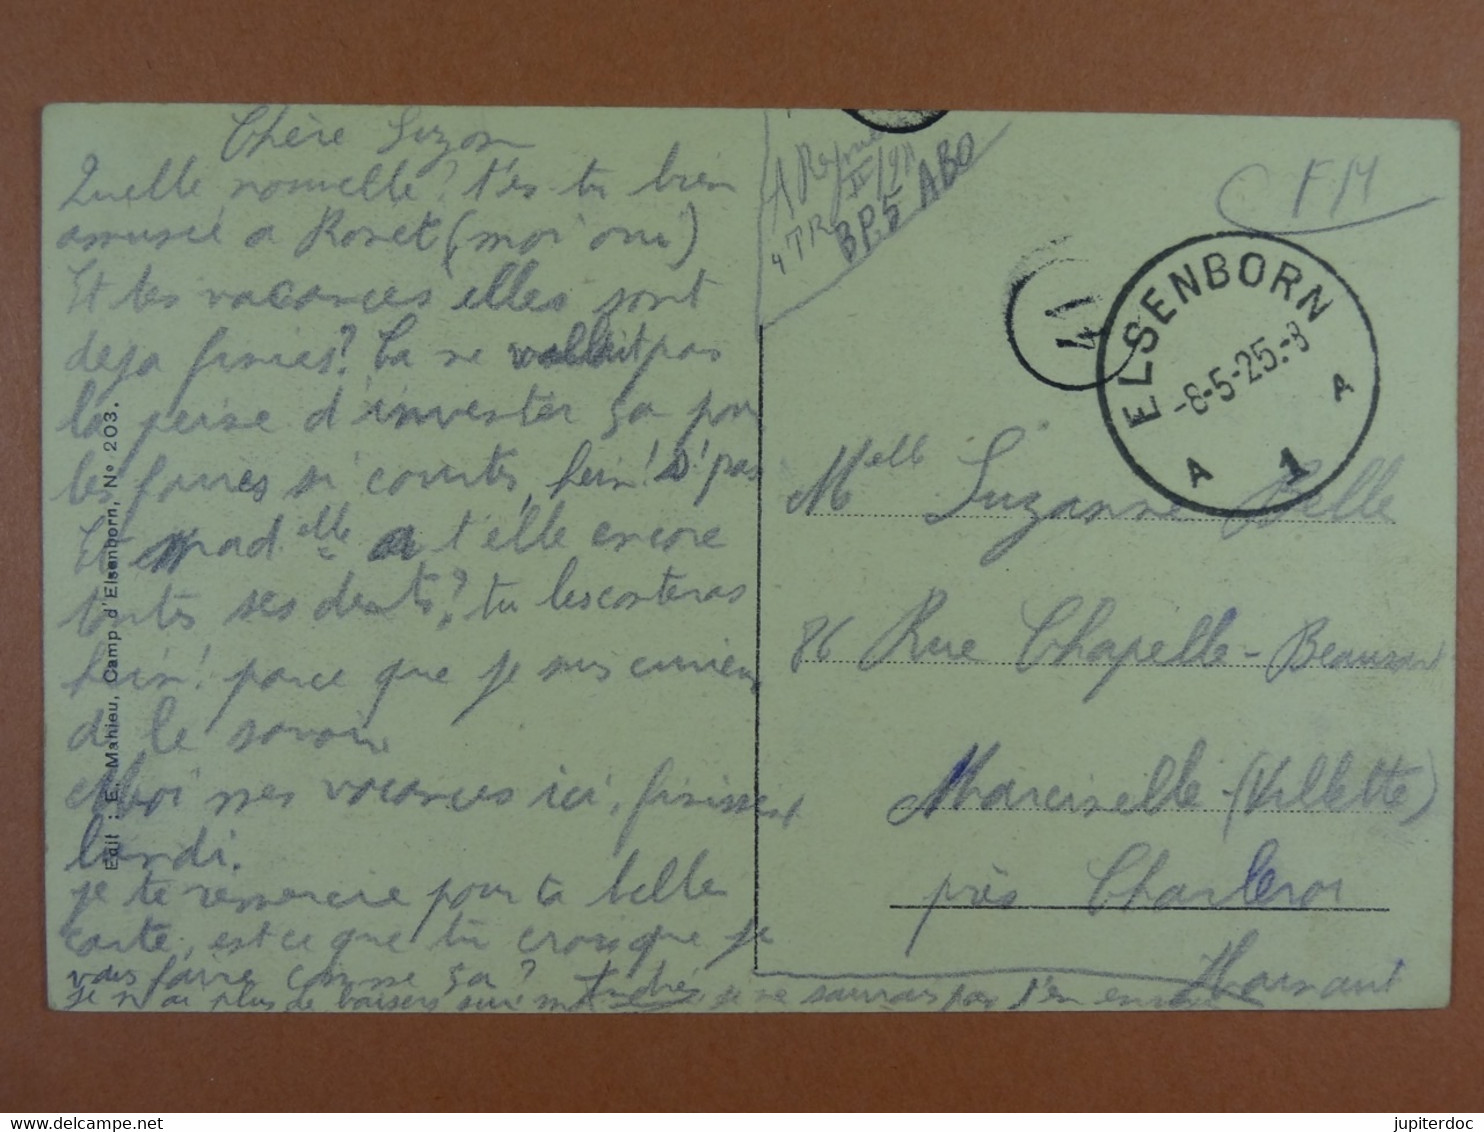 Chère Suzon
Quelle nouvelle? t'es tu bien
amusée a Ronet (moi oui)
Et tes vacances elles sont
deja finies? Ca ne vallait pas
la peine d'inventer ça pour
les faires si courtes, hein! S' pas
Et mad elle a t elle encore
toutes ses dents? tu les conteras
hein! parce que je suis curieux
de le savoir
Moi mes vacances ici, finissent
lundi.
je te remercie pour ta belle
carte, est ce que tu crois que je
vais faire comme ça? André
je n'ai plus de baisers sur moi je ne saurais pas t'en envoyer
Edit : E. Mahieu, Camp d'Elsenborn, N° 203.
A
4 TR II/9A
BP.5 ABO
FM
41
ELSENBORN
-8-5-25.-8
A 1 A
Melle Suzanne Belle
86 Rue Chapelle-Beaussart
Marcinelle (Villette)
près Charleroi
Hainaut
http://www.delcampe.net
jupiterdoc